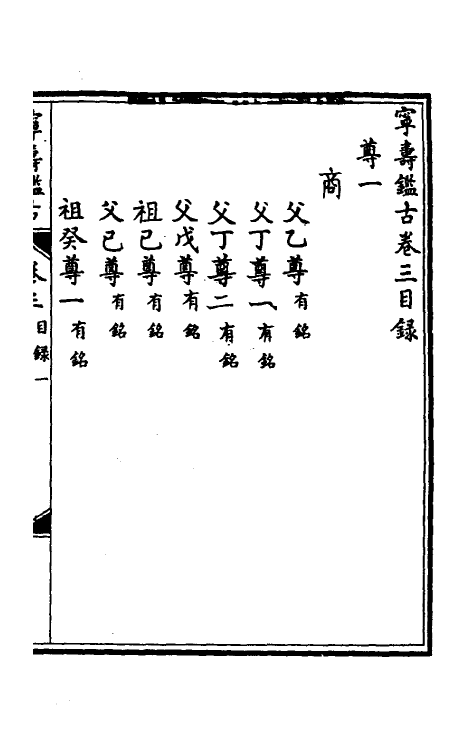 寧壽鑑古卷三目録
尊一
商
父乙尊有銘
父丁尊一有銘
父丁尊二有銘
父戊尊有銘
祖己尊有銘
父己尊有銘
祖癸尊一有銘
寧壽鑑古 卷三目録 一